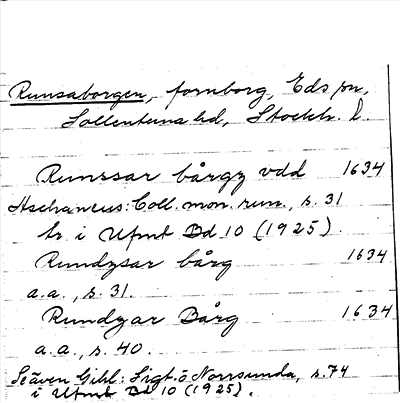 Runsaborgen, fornborg, Eds sn,
Sollentuna hd, Stockh. l.
Runssar bårgz vdd 1634
Aschaneus: Coll. mon. run., s. 31
tr. i Ufmt Bd 10 (1925).
Rundzsar bårg 1634
a.a., s. 31.
Rundzar Bårg 1634
a.a., s. 40.
Även Gihl: Sigt. o Norrsunda, s. 74
i Ufmt Bd 10 (1925).